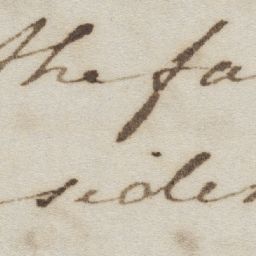 the fa
siden